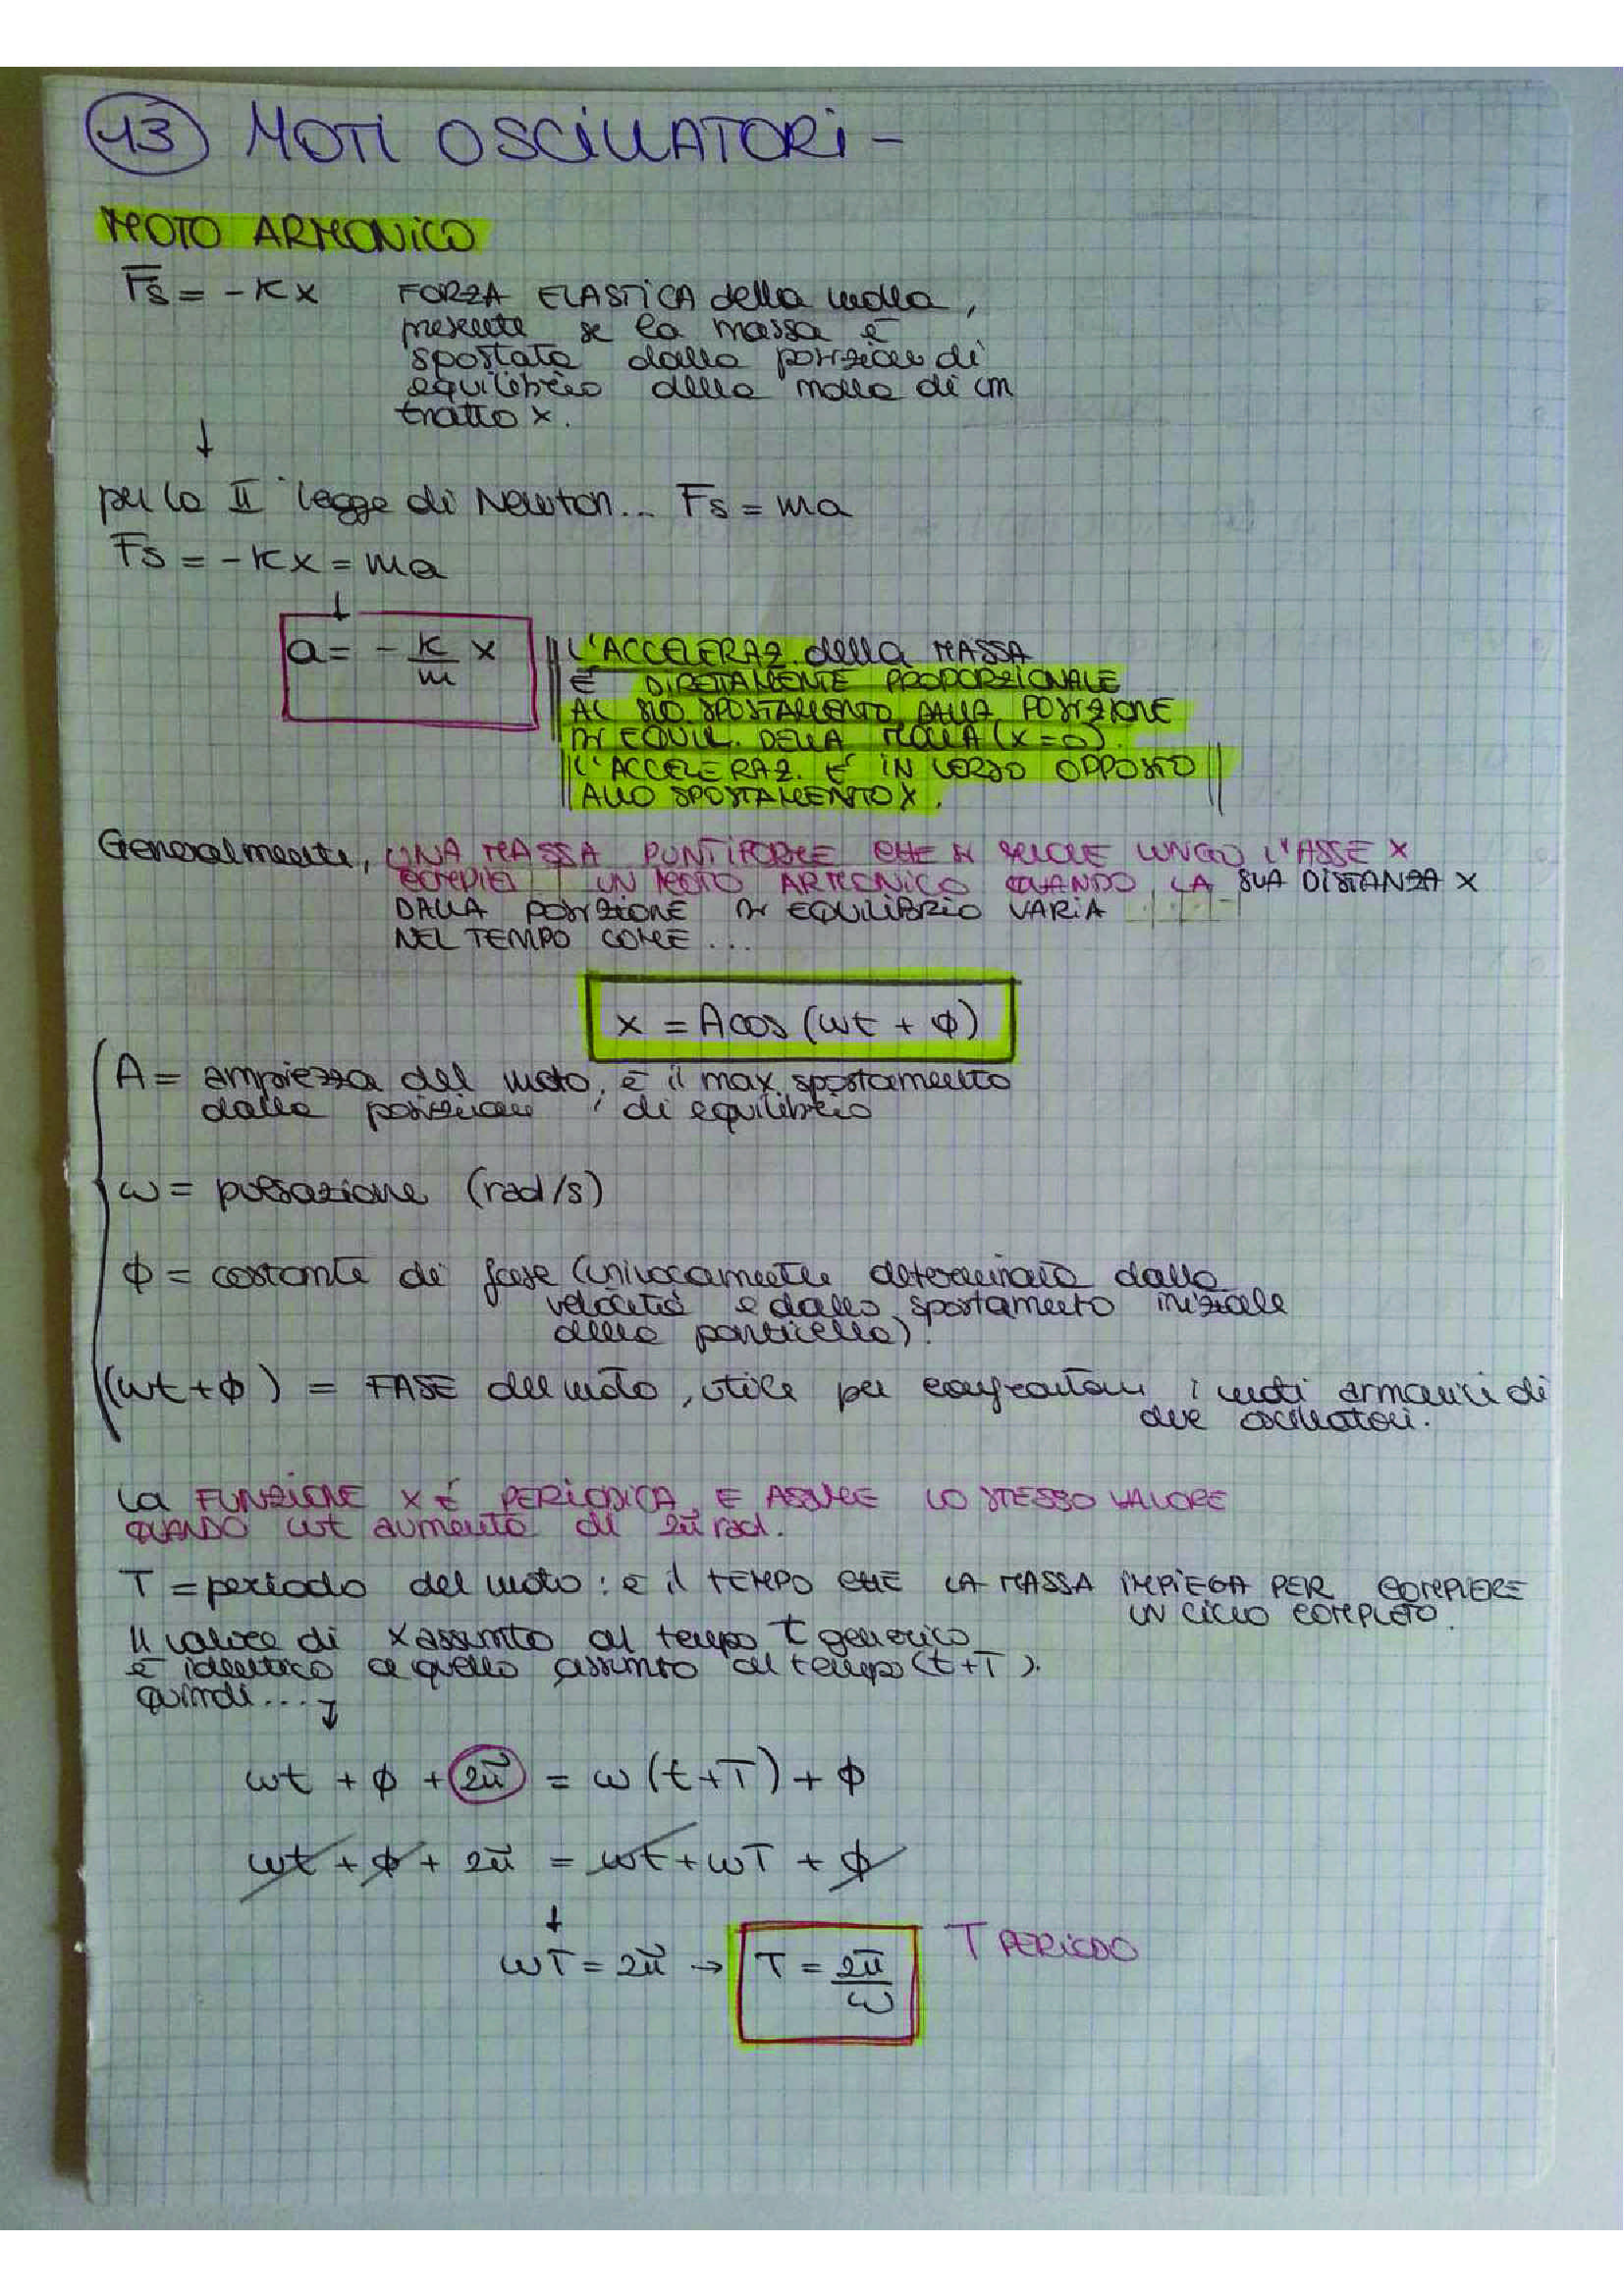 13 MOTI OSCILLATORI -
MOTO ARMONICO
Fs = -Kx FORZA ELASTICA della molla,
presente se la massa è
spostata dalla posizione di
equilibrio della molla di un
tratto x.
↓
per la II legge di Newton... Fs = ma
Fs = -Kx = ma
↓
a = - K/m x
L'ACCELERAZ. della MASSA
È DIRETTAMENTE PROPORZIONALE
AL SUO SPOSTAMENTO DALLA POSIZIONE
DI EQUIL. DELLA MOLLA (x=0).
L'ACCELERAZ. È IN VERSO OPPOSTO
ALLO SPOSTAMENTO X.
Generalmente, UNA MASSA PUNTIFORME CHE SI MUOVE LUNGO L'ASSE X
COMPIE UN MOTO ARMONICO QUANDO LA SUA DISTANZA X
DALLA POSIZIONE DI EQUILIBRIO VARIA
NEL TEMPO COME ...
x = A cos (ωt + ϕ)
A = ampiezza del moto, è il max spostamento
dalla posizione di equilibrio
ω = pulsazione (rad/s)
ϕ = costante di fase (univocamente determinata dalla
velocità e dallo spostamento iniziale
della particella).
(ωt + ϕ) = FASE del moto, utile per confrontare i moti armonici di
due oscillatori.
La FUNZIONE X È PERIODICA, E ASSUME LO STESSO VALORE
QUANDO ωt aumenta di 2π rad.
T = periodo del moto: è il TEMPO CHE LA MASSA IMPIEGA PER COMPIERE
UN CICLO COMPLETO.
Il valore di x assunto al tempo t generico
è identico a quello assunto al tempo (t+T).
quindi.... ↓
ωt + ϕ + 2π = ω (t+T) + ϕ
ωt + ϕ + 2π = ωt + ωT + ϕ
↓
ωT = 2π → T = 2π/ω T PERIODO